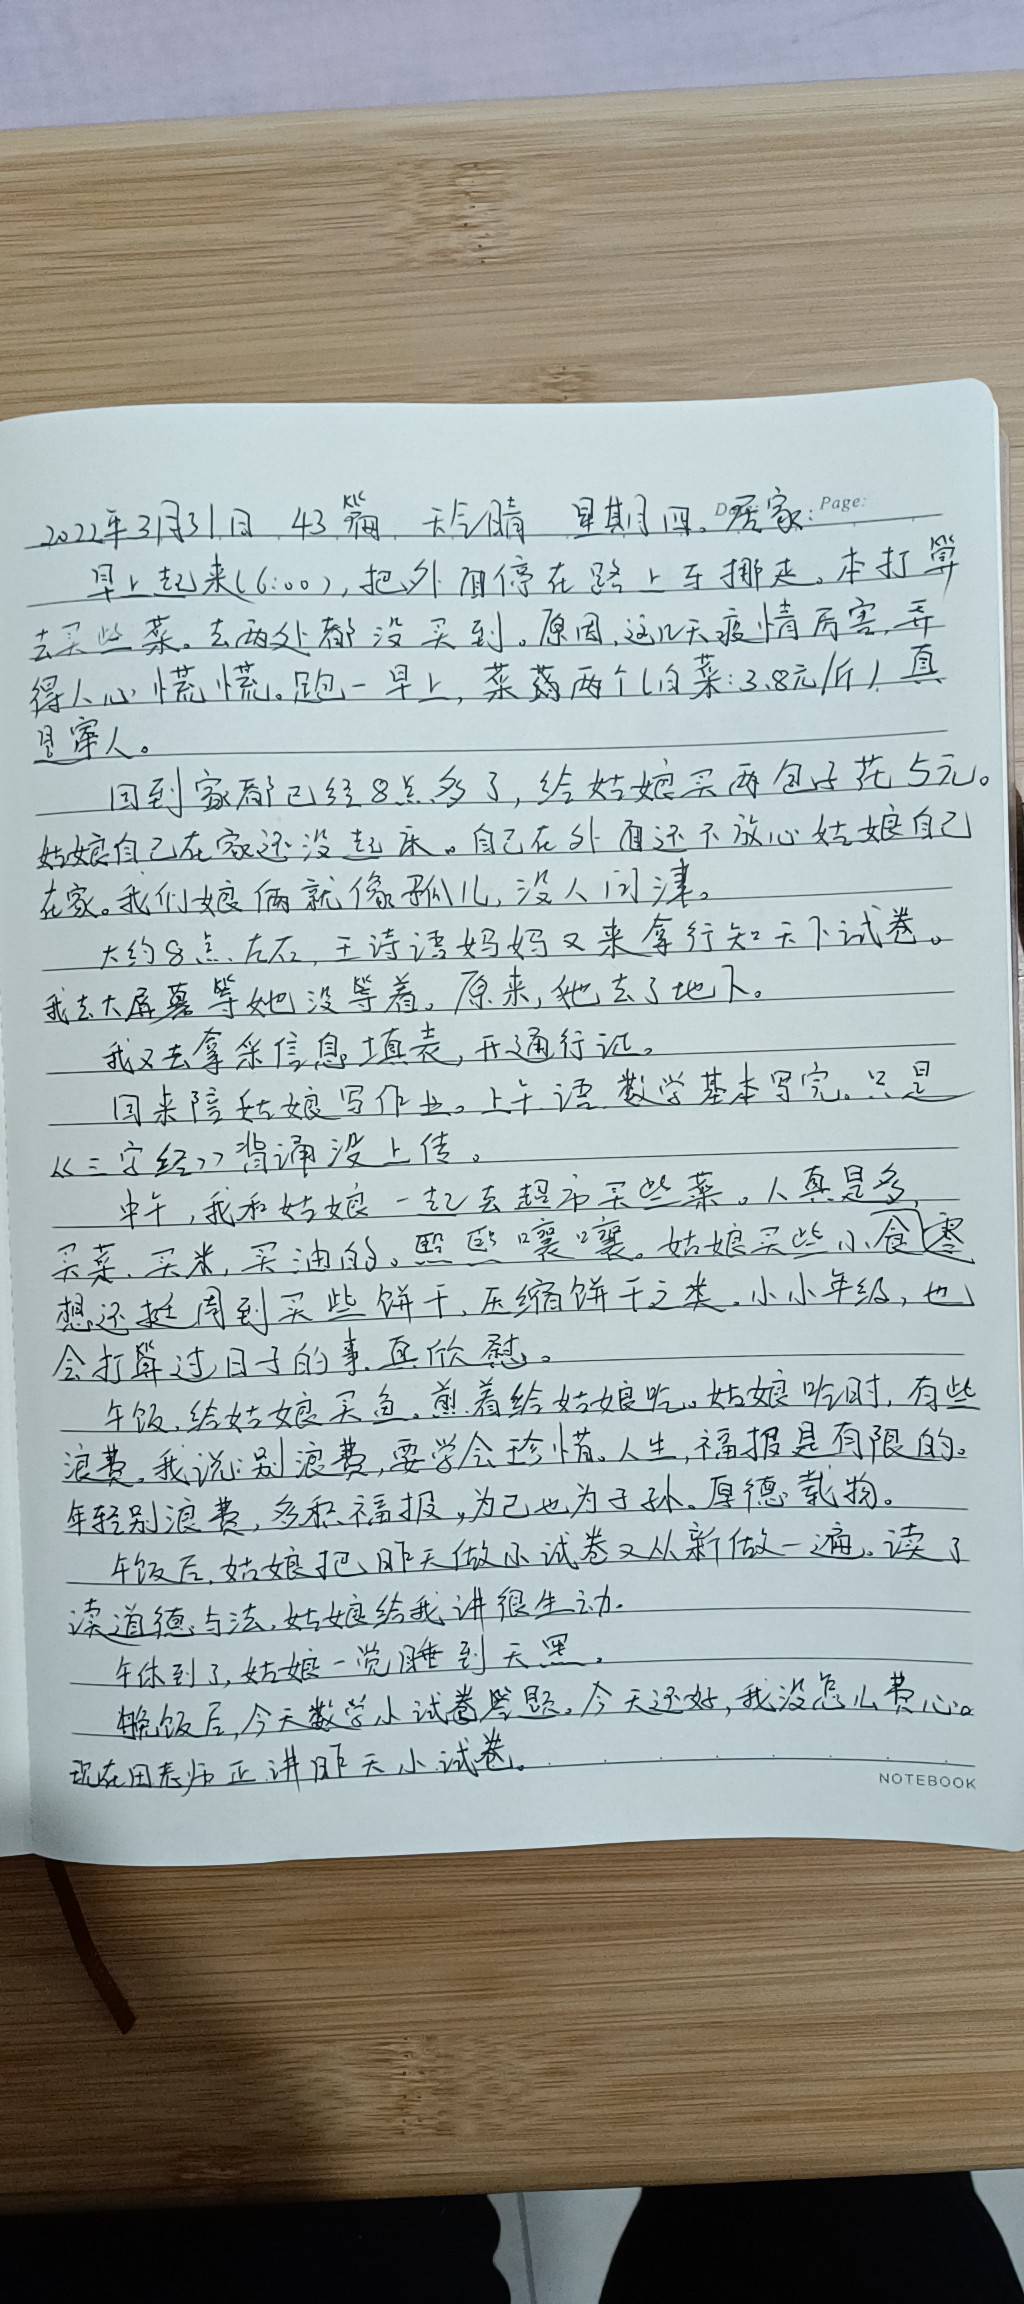 2022年3月31日 43篇 天气晴 星期四。居家: Page:
早上起来(6:00),把外面停在路上车挪走。本打算
去买些菜。去两处都没买到。原因,这几天疫情厉害,弄
得人心慌慌。跑一早上,菜蒟两个(白菜:3.8元/斤),真
是宰人。
回到家都已经8点多了,给姑娘买两包子花5元。
姑娘自己在家还没起床。自己在外面还不放心姑娘自己
在家。我们娘俩就像孤儿,没人问津。
大约8点左右,王诗语妈妈又来拿行知天下试卷。
我去大屏幕等她没等着。原来,她去了地下。
我又去拿采信息填表,开通行证。
回来陪姑娘写作业。上午语数学基本写完。只是
《三字经》背诵没上传。
中午,我和姑娘一起去超市买些菜。人真是多,
买菜、买米,买油的。熙熙嚷嚷。姑娘买些小食零
想还挺周到买些饼干,压缩饼干之类。小小年级,也
会打算过日子的事,真欣慰。
午饭,给姑娘买鱼,煎着给姑娘吃。姑娘吃时,有些
浪费。我说:别浪费,要学会珍惜。人生,福报是有限的。
年轻别浪费,多积福报,为己也为子孙。厚德载物。
午饭后,姑娘把昨天做小试卷又从新做一遍。读了
读道德与法,姑娘给我讲很生动.
午休到了,姑娘一觉睡到天黑。
晚饭后,今天数学小试卷答题。今天还好,我没怎么费心。
现在田老师正讲昨天小试卷。
NOTEBOOK